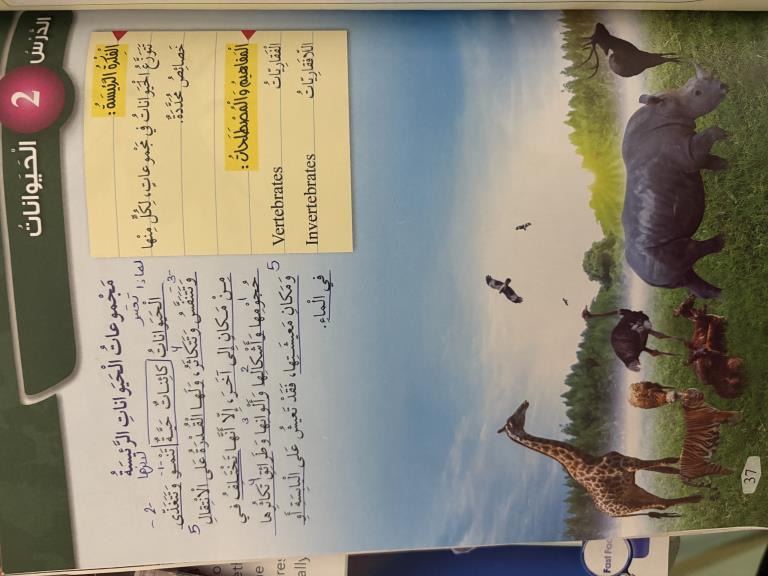 الدَّرْسُ 2
الْحَيَوَاناتُ
الْفِكْرَةُ الرَّئِيسَةُ:
تَتَوَزَّعُ الْحَيَوَاناتُ في مَجْموعاتٍ، لِكُلٍّ مِنْها
خَصائِصُ مُحَدَّدَةٌ.
الْمَفاهيمُ وَالْمُصْطَلَحاتُ:
الْفَقارِيّاتُ Vertebrates
اللّافَقارِيّاتُ Invertebrates
مَجْموعاتُ الْحَيَواناتِ الرَّئيسَةُ
لماذا تعتبر
الْحَيَواناتُ كائِناتٌ حَيَّةٌ تَنْمو وَتَتَغَذّى
-1- -2-
وَتَتَنَفَّسُ وَتَتَكاثَرُ، وَلَها الْقُدْرَةُ عَلى الِانْتِقالِ
-3- 4 5
مِنْ مَكانٍ إِلى آخَرَ، إِلّا أَنَّها تَخْتَلِفُ في
حُجومِها وَأَشْكالِها وَأَلْوانِها وَطَرائِقِ تَكاثُرِها
1 2 3 4
وَمَكانِ مَعيشَتِها، فَقَدْ تَعيشُ عَلى الْيابِسَةِ أَوْ
5
في الْماءِ.
37
Fast Fac